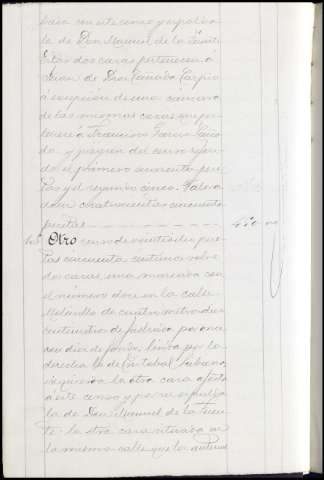 con este censo y espalda
la de Don Manuel de la Fuente
Estas dos casas pertenecen á
Juan de Dios Cañada Carpio
á escepcion de una cámara
de las mismas casas que per-
tenece á Francisco Garcia
do y pagan del censo
do el primero cuarenta pese-
tas y el segundo cinco. Valora-
do en cuatrocientas cincuenta
pesetas 450
Otro censo de veintidos pese-
tas cincuenta centimos sobre
dos casas, una marcada con
el número doce en la calle
Molinillo de cuatro metros diez
centimetros de fachada por once
con diez de fondo; linda por la
derecha la de Cristobal
izquierda la otra casa afecta
á este censo y por su espalda
la de Don Manuel de la Fuen-
te. La otra casa situada en
la misma calle que la anterior